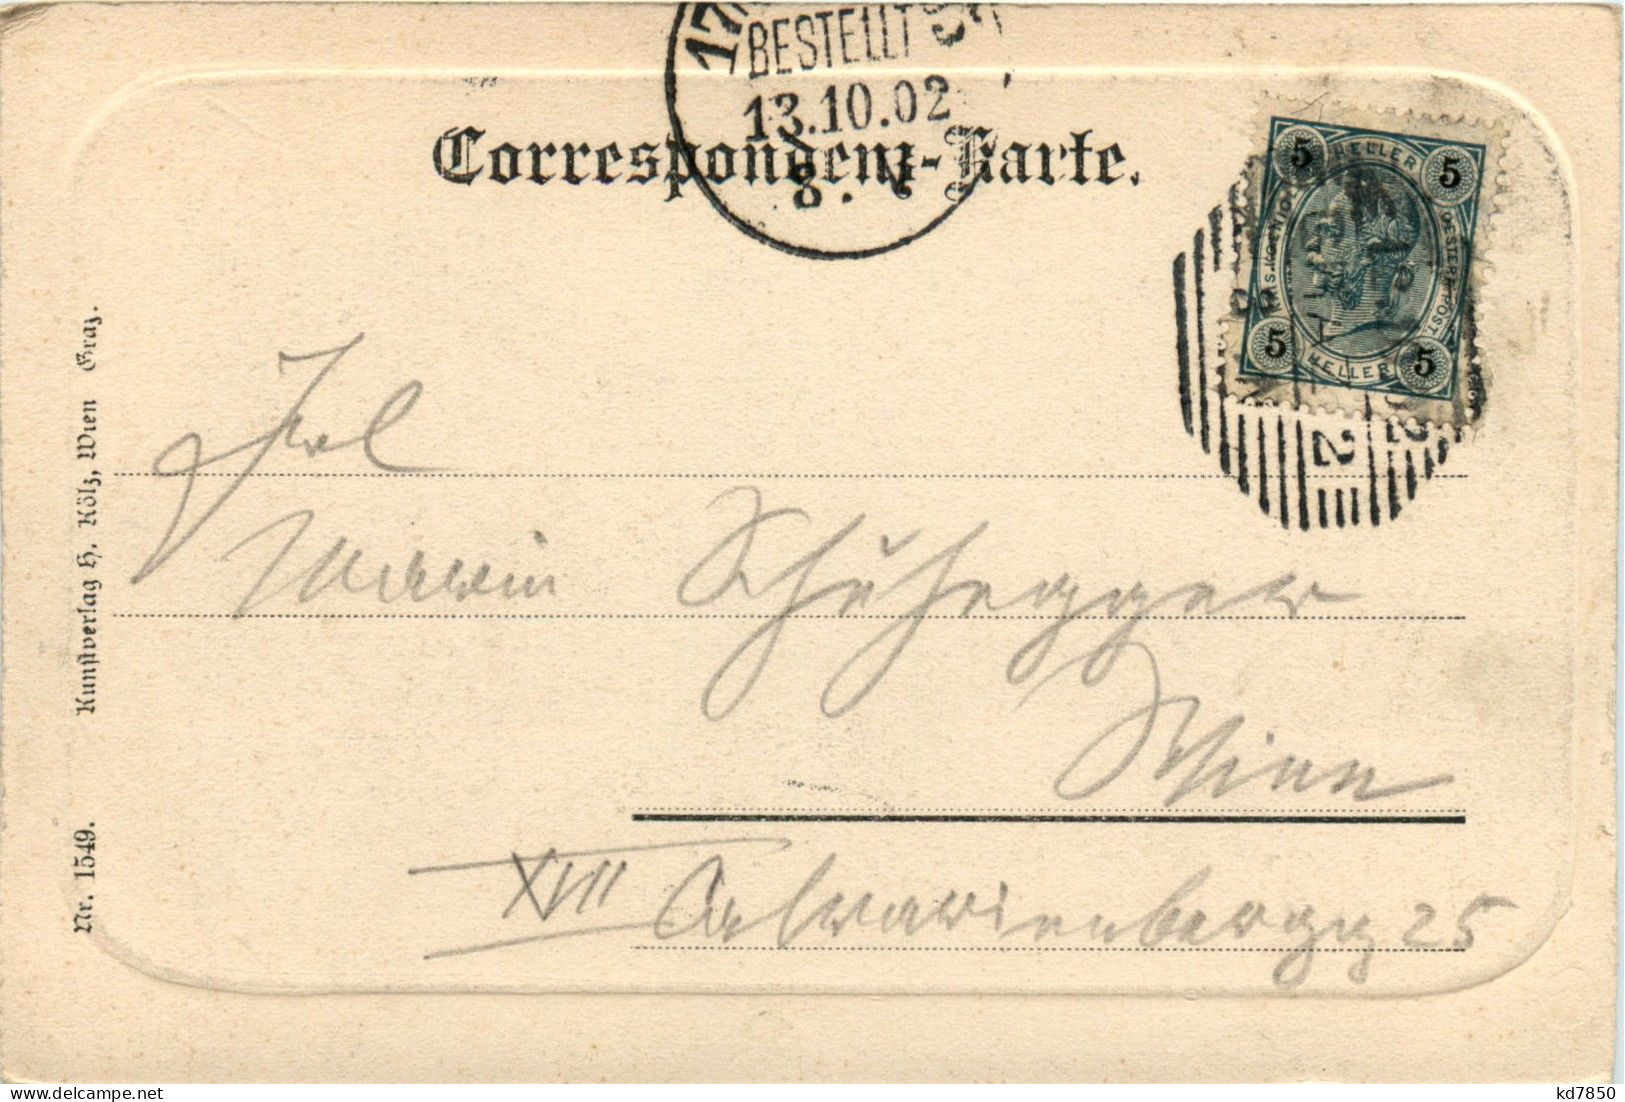 17
BESTELLT
13.10.02
8. V
Correspondenz-Karte.
5 HELLER 5
K.K. OESTERR. POST.
5 HELLER 5
2
Frl
Marie Schuhegger
Wien
XVII Calvarienbergg 25
Kunstverlag H. Kölz, Wien Graz.
Nr. 1549.
kd7850